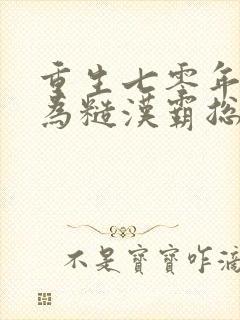 重生七零年
為糙漢霸總
不是寶寶咋滴